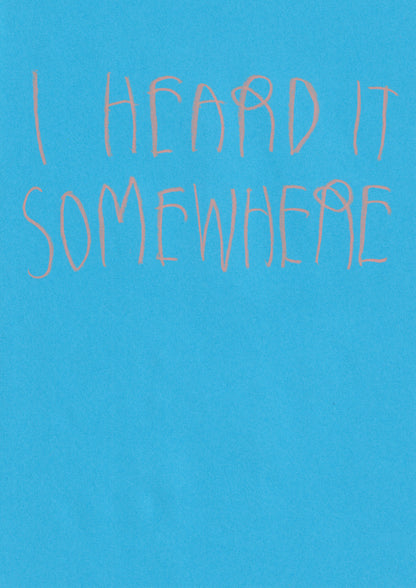 I HEARD IT
SOMEWHERE